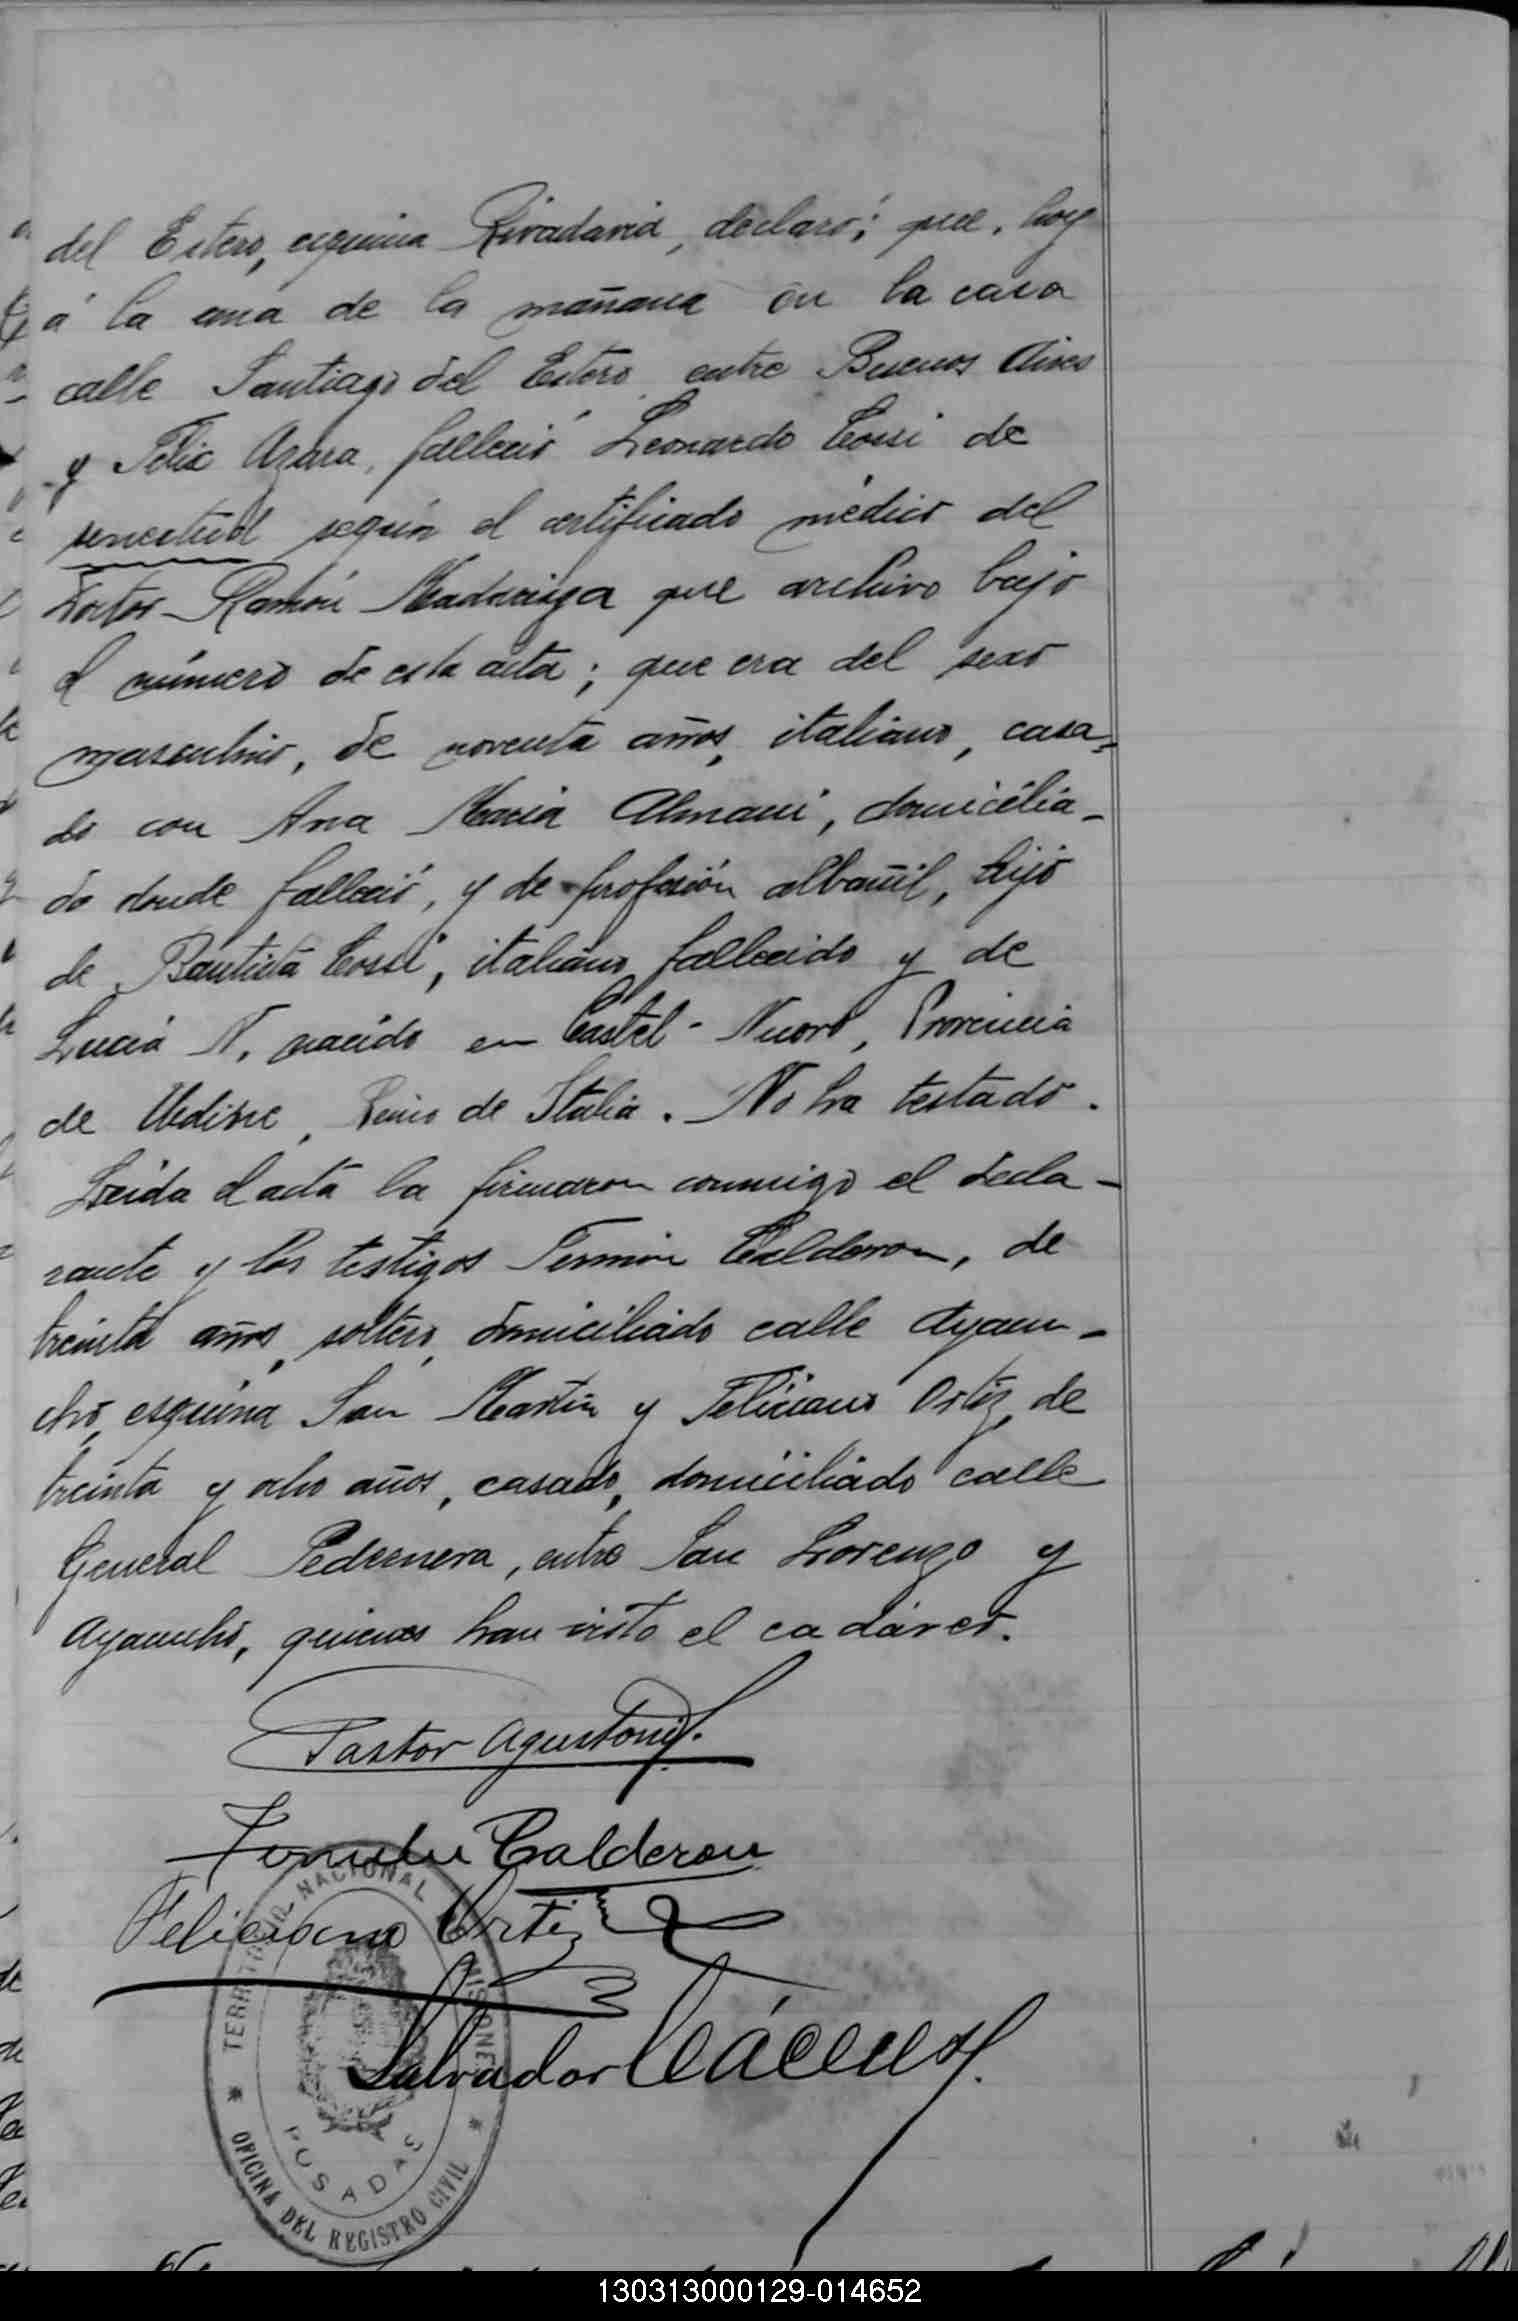 del Estero, esquina Rivadavia, declaró; que, hoy
á la una de la mañana en la casa
calle Santiago del Estero entre Buenos Aires
y Felix Azara, falleció Leonardo Cossi de
senectud según el certificado médico del
Doctor Ramón Madariaga que archivo bajo
el número de esta acta; que era del sexo
masculino, de noventa años, italiano, casa=
do con Ana Maria Almani, domicilia-
do donde falleció, y de profesión albañil, hijo
de Bautista Cossi, italiano fallecido y de
Lucia N. nacido en Castel-Nuovo, Provincia
de Udine, Reino de Italia. No ha testado.
Leida el acta la firmaron conmigo el decla-
rante y los testigos Fermin Calderon, de
treinta años, soltero, domiciliado calle Ayacu-
cho, esquina San Martin y Feliciano Ortiz, de
treinta y ocho años, casado, domiciliado calle
General Pedernera, entre San Lorenzo y
Ayacucho, quienes han visto el cadáver.
Pastor Agustoni
Calderon
Feliciano Ortiz
Salvador
TERRITORIO NACIONAL MISIONES
POSADAS
OFICINA DEL REGISTRO CIVIL
130313000129-014652